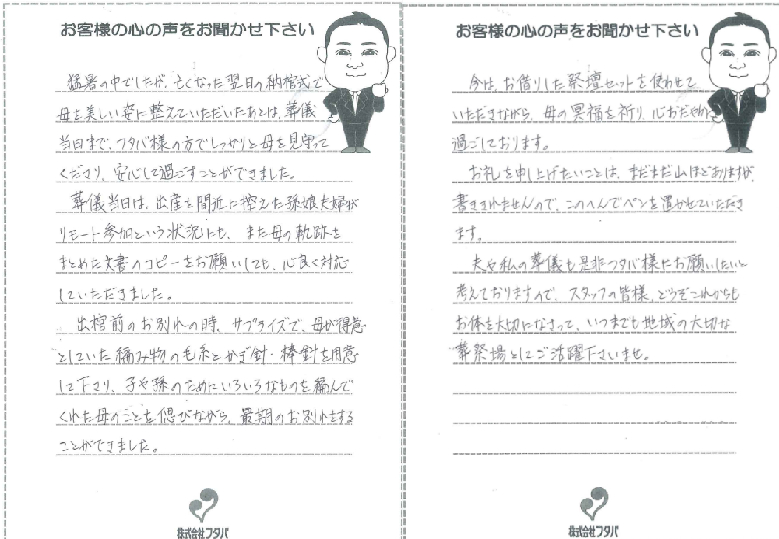 お客様の心の声をお聞かせ下さい
猛暑の中でしたが、亡くなった翌日の納棺式で
母を美しい姿に整えていただいたあとは、葬儀
当日まで、フタバ様の方でしっかりと母を見守って
くださり、安心して過ごすことができました。
葬儀当日は、出産を間近に控えた孫娘夫婦が
リモート参加という状況にも、また母の軌跡を
まとめた文書のコピーをお願いしても、心良く対応
していただきました。
出棺前のお別れの時、サプライズで、母が得意
としていた編み物の毛糸とかぎ針・棒針を用意
して下さり、子や孫のためにいろいろなものを編んで
くれた母のことを偲びながら、最期のお別れをする
ことができました。
株式会社フタバ
お客様の心の声をお聞かせ下さい
今は、お借りした祭壇セットを使わせて
いただきながら、母の冥福を祈り、心おだやかに
過ごしております。
お礼を申し上げたいことは、まだまだ山ほどありますが、
書ききれませんので、このへんでペンを置かせていただき
ます。
夫や私の葬儀も是非フタバ様にお願いしたいと
考えておりますので、スタッフの皆様、どうぞこれからも
お体を大切になさって、いつまでも地域の大切な
葬祭場としてご活躍下さいませ。
株式会社フタバ